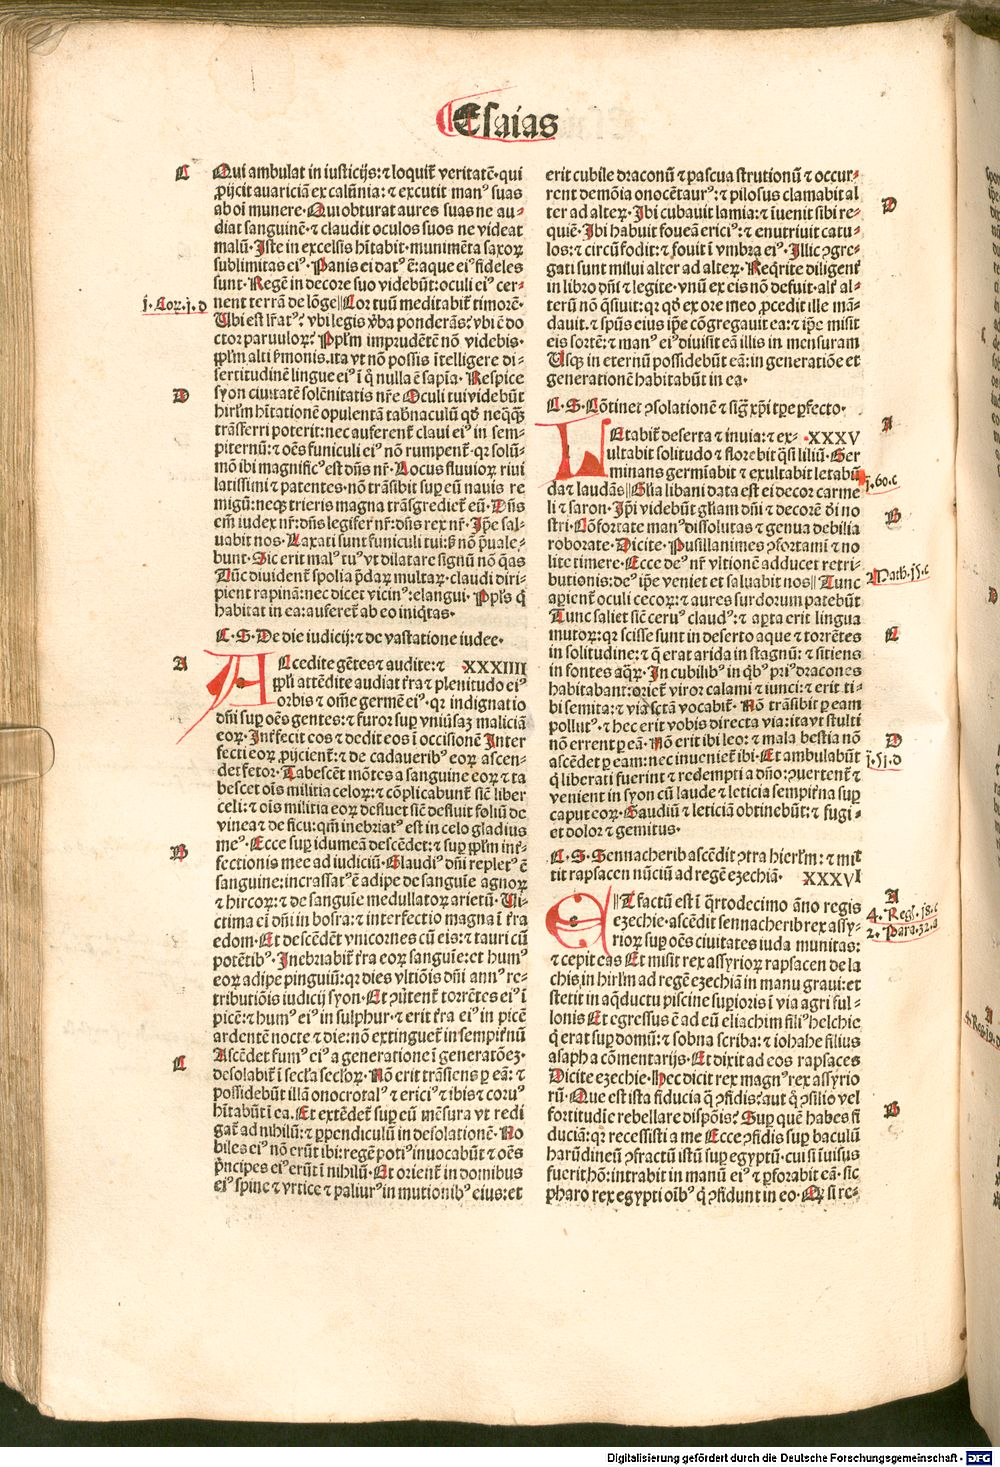 Esaias
C
Qui ambulat in iusticijs: ⁊ loquit᷑ veritatē· qui
ꝓijcit auariciā ex calūnia: ⁊ excutit manꝰ suas
ab oi munere· Qui obturat aures suas ne au⸗
diat sanguinē· ⁊ claudit oculos suos ne videat
malū· Iste in excelsis hītabit· munimēta saxoꝝ
sublimitas eiꝰ· Panis ei datꝰ ē: aque eiꝰ fideles
sunt· Regē in decore suo videbūt: oculi eiꝰ cer⸗
j· Cor· j· d
nent terrā de lōge ‖ Cor tuū meditabit᷑ timorē·
Ubi est lr̄atꝰ? vbi legis v̓ba ponderās? vbi ē do
ctor paruuloꝝ? Pplm̄ imprudētē nō videbis·
pplm̄ alti s̓monis· ita vt nō possis ītelligere di⸗
sertitudinē lingue eiꝰ ī q̄ nulla ē sapīa· Respice
D
syon ciuitatē solēnitatis nr̄e Oculi tui videbūt
hirlm̄ hītationē opulentā tab̓naculū qd̓ neq̄ꝗ̄
trāsferri poterit: nec auferent᷑ claui eiꝰ in sem⸗
piternū: ⁊ oēs funiculi eiꝰ nō rumpent᷑· qr solū⸗
mō ibi magnificꝰ est dn̄s nr̄· Locus fluuioꝝ riui
latissimi ⁊ patentes· nō trāsibit suꝑ eū nauis re
migū: neqꝫ trieris magna trāsgrediet᷑ eū· Dn̄s
em̄ iudex nr̄: dn̄s legifer nr̄: dn̄s rex nr̄· Ip̄e sal⸗
uabit nos· Laxati sunt funiculi tui: ꝫ nō p̄uale⸗
bunt· Sic erit malꝰ tuꝰ vt dilatare signū nō q̄as
Tūc diuident᷑ spolia p̄daꝝ multaꝝ· claudi diri⸗
pient rapinā: nec dicet vicinꝰ: elangui· Ppl̓s q̄
habitat in ea: auferet᷑ ab eo iniq̄tas·
C· S· De die iudicij: ⁊ de vastatione iudee·
A
Accedite gētes ⁊ audite: ⁊ XXXIIII
ppl̓i attēdite audiat tr̄a ⁊ plenitudo eiꝰ
orbis ⁊ om̄e germē eiꝰ· qr indignatio
dn̄i suꝑ oēs gentes: ⁊ furor suꝑ vniu̓saꝫ maliciā
eoꝝ· Int̓fecit eos ⁊ dedit eos ī occisionē Inter
fecti eoꝝ ꝓijcient᷑: ⁊ de cadauerib̓ꝰ eoꝝ ascen⸗
det fetor· Tabescēt mōtes a sanguine eoꝝ ⁊ ta
bescet oīs militia celoꝝ: ⁊ cōplicabunt᷑ sic̄ liber
celi: ⁊ oīs militia eoꝝ defluet sic̄ defluit foliū de
vinea ⁊ de ficu: qm̄ inebriatꝰ est in celo gladius
B
meꝰ· Ecce suꝑ idumeā descēdet: ⁊ suꝑ pplm̄ int̓⸗
fectionis mee ad iudiciū· Gladiꝰ dn̄i repletꝰ ē
sanguine: incrassatꝰ ē adipe de sanguīe agnoꝝ
⁊ hircoꝝ: ⁊ de sanguīe medullatoꝝ arietū· Ui⸗
ctima ei dn̄i in bosra: ⁊ interfectio magna ī tr̄a
edom· Et descēdēt vnicornes cū eis: ⁊ tauri cū
potētibꝰ· Inebriabit᷑ tr̄a eoꝝ sanguīe: et humꝰ
eoꝝ adipe pinguiū: qr dies vltiōis dn̄i annꝰ re⸗
tributiōis iudicij syon· Et ꝯu̓tent᷑ torrētes eiꝰ ī
picē: ⁊ humꝰ eiꝰ in sulphur· ⁊ erit tr̄a eiꝰ in picē
ardentē nocte ⁊ die: nō extinguet᷑ in sempit̓nū
C
Ascēdet fumꝰ eiꝰ a generatione ī generatōeꝫ·
desolabit᷑ ī secl̄a secl̄oꝝ· Nō erit trāsiens ꝑ eā: ⁊
possidebūt illā onocrotalꝰ ⁊ ericiꝰ ⁊ ibis ⁊ coruꝰ
hītabūt ī ea· Et extēdet᷑ suꝑ eū mēsura vt redi
gat᷑ ad nihilū: ⁊ ꝑpendiculū in desolationē· No
biles eiꝰ nō erūt ibi: regē potiꝰ inuocabūt ⁊ oēs
p̄ncipes eiꝰ erūt ī nihilū· Et orient᷑ in domibus
eiꝰ spine ⁊ vrtice ⁊ paliurꝰ in munitionibꝰ eius: et
erit cubile draconū ⁊ pascua strutionū ⁊ occur⸗
rent demōia onocētaurꝰ: ⁊ pilosus clamabit al
D
ter ad alteꝝ· Ibi cubauit lamia: ⁊ īuenit sibi re⸗
quiē· Ibi habuit foueā ericiꝰ: ⁊ enutriuit catu⸗
los: ⁊ circūfodit: ⁊ fouit ī vmbra eiꝰ· Illic ꝯgre⸗
gati sunt milui alter ad alteꝝ· Req̄rite diligent᷑
in libro dn̄i ⁊ legite· vnū ex eis nō defuit· alt᷑ al⸗
terū nō q̄siuit: qr qd̓ ex ore meo ꝓcedit ille mā⸗
dauit· ⁊ spūs eius ip̄e cōgregauit ea: ⁊ ip̄e misit
eis sortē: ⁊ manꝰ eiꝰ diuisit eā illis in mensuram
Usqꝫ in eternū possidebūt eā: in generatiōe et
generationē habitabūt in ea·
C· S· Cōtinet ꝯsolationē ⁊ sig̓ xp̄i tꝑe ꝑfecto·
A
Letabit᷑ deserta ⁊ inuia: ⁊ ex⸗ ·XXXV
ultabit solitudo ⁊ florebit q̄si liliū· Ger
minans germīabit ⁊ exultabit letabū
j· 60· c
da ⁊ laudās ‖ Glīa libani data est ei decor carme
li ⁊ saron· Ip̄i videbūt glīam dn̄i ⁊ decorē dī no
B
stri· Cōfortate manꝰ dissolutas ⁊ genua debilia
roborate· Dicite· Pusillanimes ꝯfortami ⁊ no
lite timere· Ecce deꝰ nr̄ vltionē adducet retri⸗
2 Math· js· c
butionis: deꝰ ip̄e veniet et saluabit nos ‖ Tunc
aꝑient᷑ oculi cecoꝝ: ⁊ aures surdorum patebūt
Tunc saliet sic̄ ceruꝰ claudꝰ: ⁊ aꝑta erit lingua
C
mutoꝝ: qr scisse sunt in deserto aque ⁊ torrētes
in solitudine: ⁊ q̄ erat arida in stagnū: ⁊ sitiens
in fontes aq̄ꝝ· In cubilibꝰ in q̄bꝰ priꝰ dracones
habitabant: oriet᷑ viror calami ⁊ iunci: ⁊ erit ti⸗
bi semita: ⁊ via sctā vocabit᷑· Nō trāsibit ꝑ eam
pollutꝰ· ⁊ hec erit vobis directa via: ita vt stulti
D
nō errent ꝑ eā· Nō erit ibi leo: ⁊ mala bestia nō
j· 5j· d
ascēdet ꝑ eam: nec inueniet᷑ ibi· Et ambulabūt
q̄ liberati fuerint ⁊ redempti a dn̄o: ꝯuertent᷑ ⁊
venient in syon cū laude ⁊ leticia sempit̓na suꝑ
caput eoꝝ· Gaudiū ⁊ leticiā obtinebūt: ⁊ fugi⸗
et dolor ⁊ gemitus·
C· S· Sennacherib ascēdit ꝯtra hierlm̄: ⁊ mit
tit rapsacen nūciū ad regē ezechiā· XXXVI
A
‖ Et factū est ī q̄rtodecimo āno regis
4· Reg· j8· c
ezechie· ascēdit sennacherib rex assy⸗
2· Para· 32· a
rioꝝ suꝑ oēs ciuitates iuda munitas:
⁊ cepit eas Et misit rex assyrioꝝ rapsacen de la
chis in hirlm̄ ad regē ezechiā in manu graui: et
stetit in aq̄ductu piscine suꝑioris ī via agri ful⸗
lonis Et egressus ē ad eū eliachim filiꝰ helchie
q̄ erat suꝑ domū: ⁊ sobna scriba: ⁊ iohahe filius
asaph a cōmentarijs· Et dixit ad eos rapsaces
Dicite ezechie· Hec dicit rex magnꝰ rex assyrio
rū· Que est ista fiducia q̄ ꝯfidis? aut q̄ ꝯsilio vel
B
fortitudīe rebellare dispōis? Suꝑ quē habes fi
duciā: qr recessisti a me Ecce ꝯfidis suꝑ baculū
harūdineū ꝯfractū istū suꝑ egyptū· cui si īuisus
fuerit hō: intrabit in manū eiꝰ ⁊ ꝑforabit eā· sic
pharo rex egypti oībꝰ q̄ ꝯfidunt in eo· Qr si re⸗
Digitalisierung gefördert durch die Deutsche Forschungsgemeinschaft · DFG